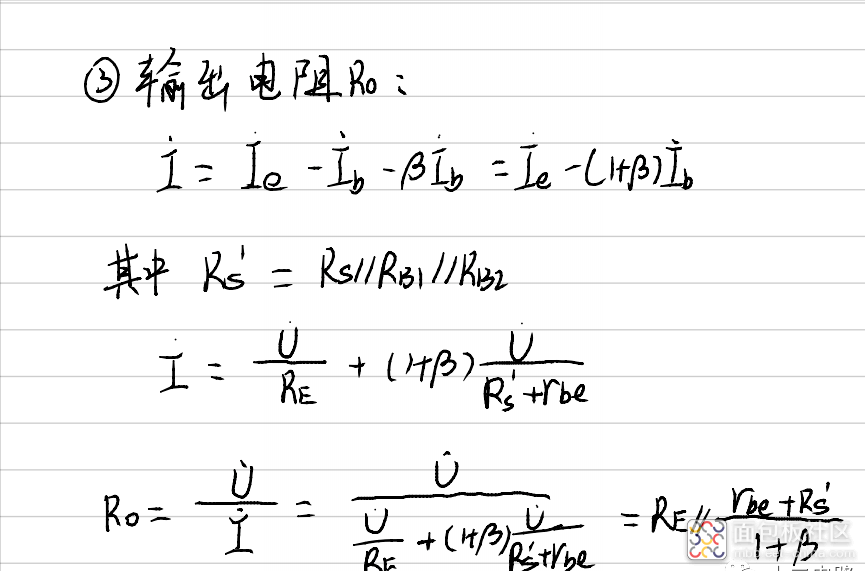 ③输出电阻Ro：
İ = İe - İb - βİb = İe - (1+β)İb
其中 Rs' = Rs//RB1//RB2
İ = U̇/RE + (1+β) U̇/(Rs'+rbe)
Ro = U̇/İ = U̇/(U̇/RE + (1+β) U̇/(Rs'+rbe)) = RE // (rbe+Rs')/(1+β)
面包板社区